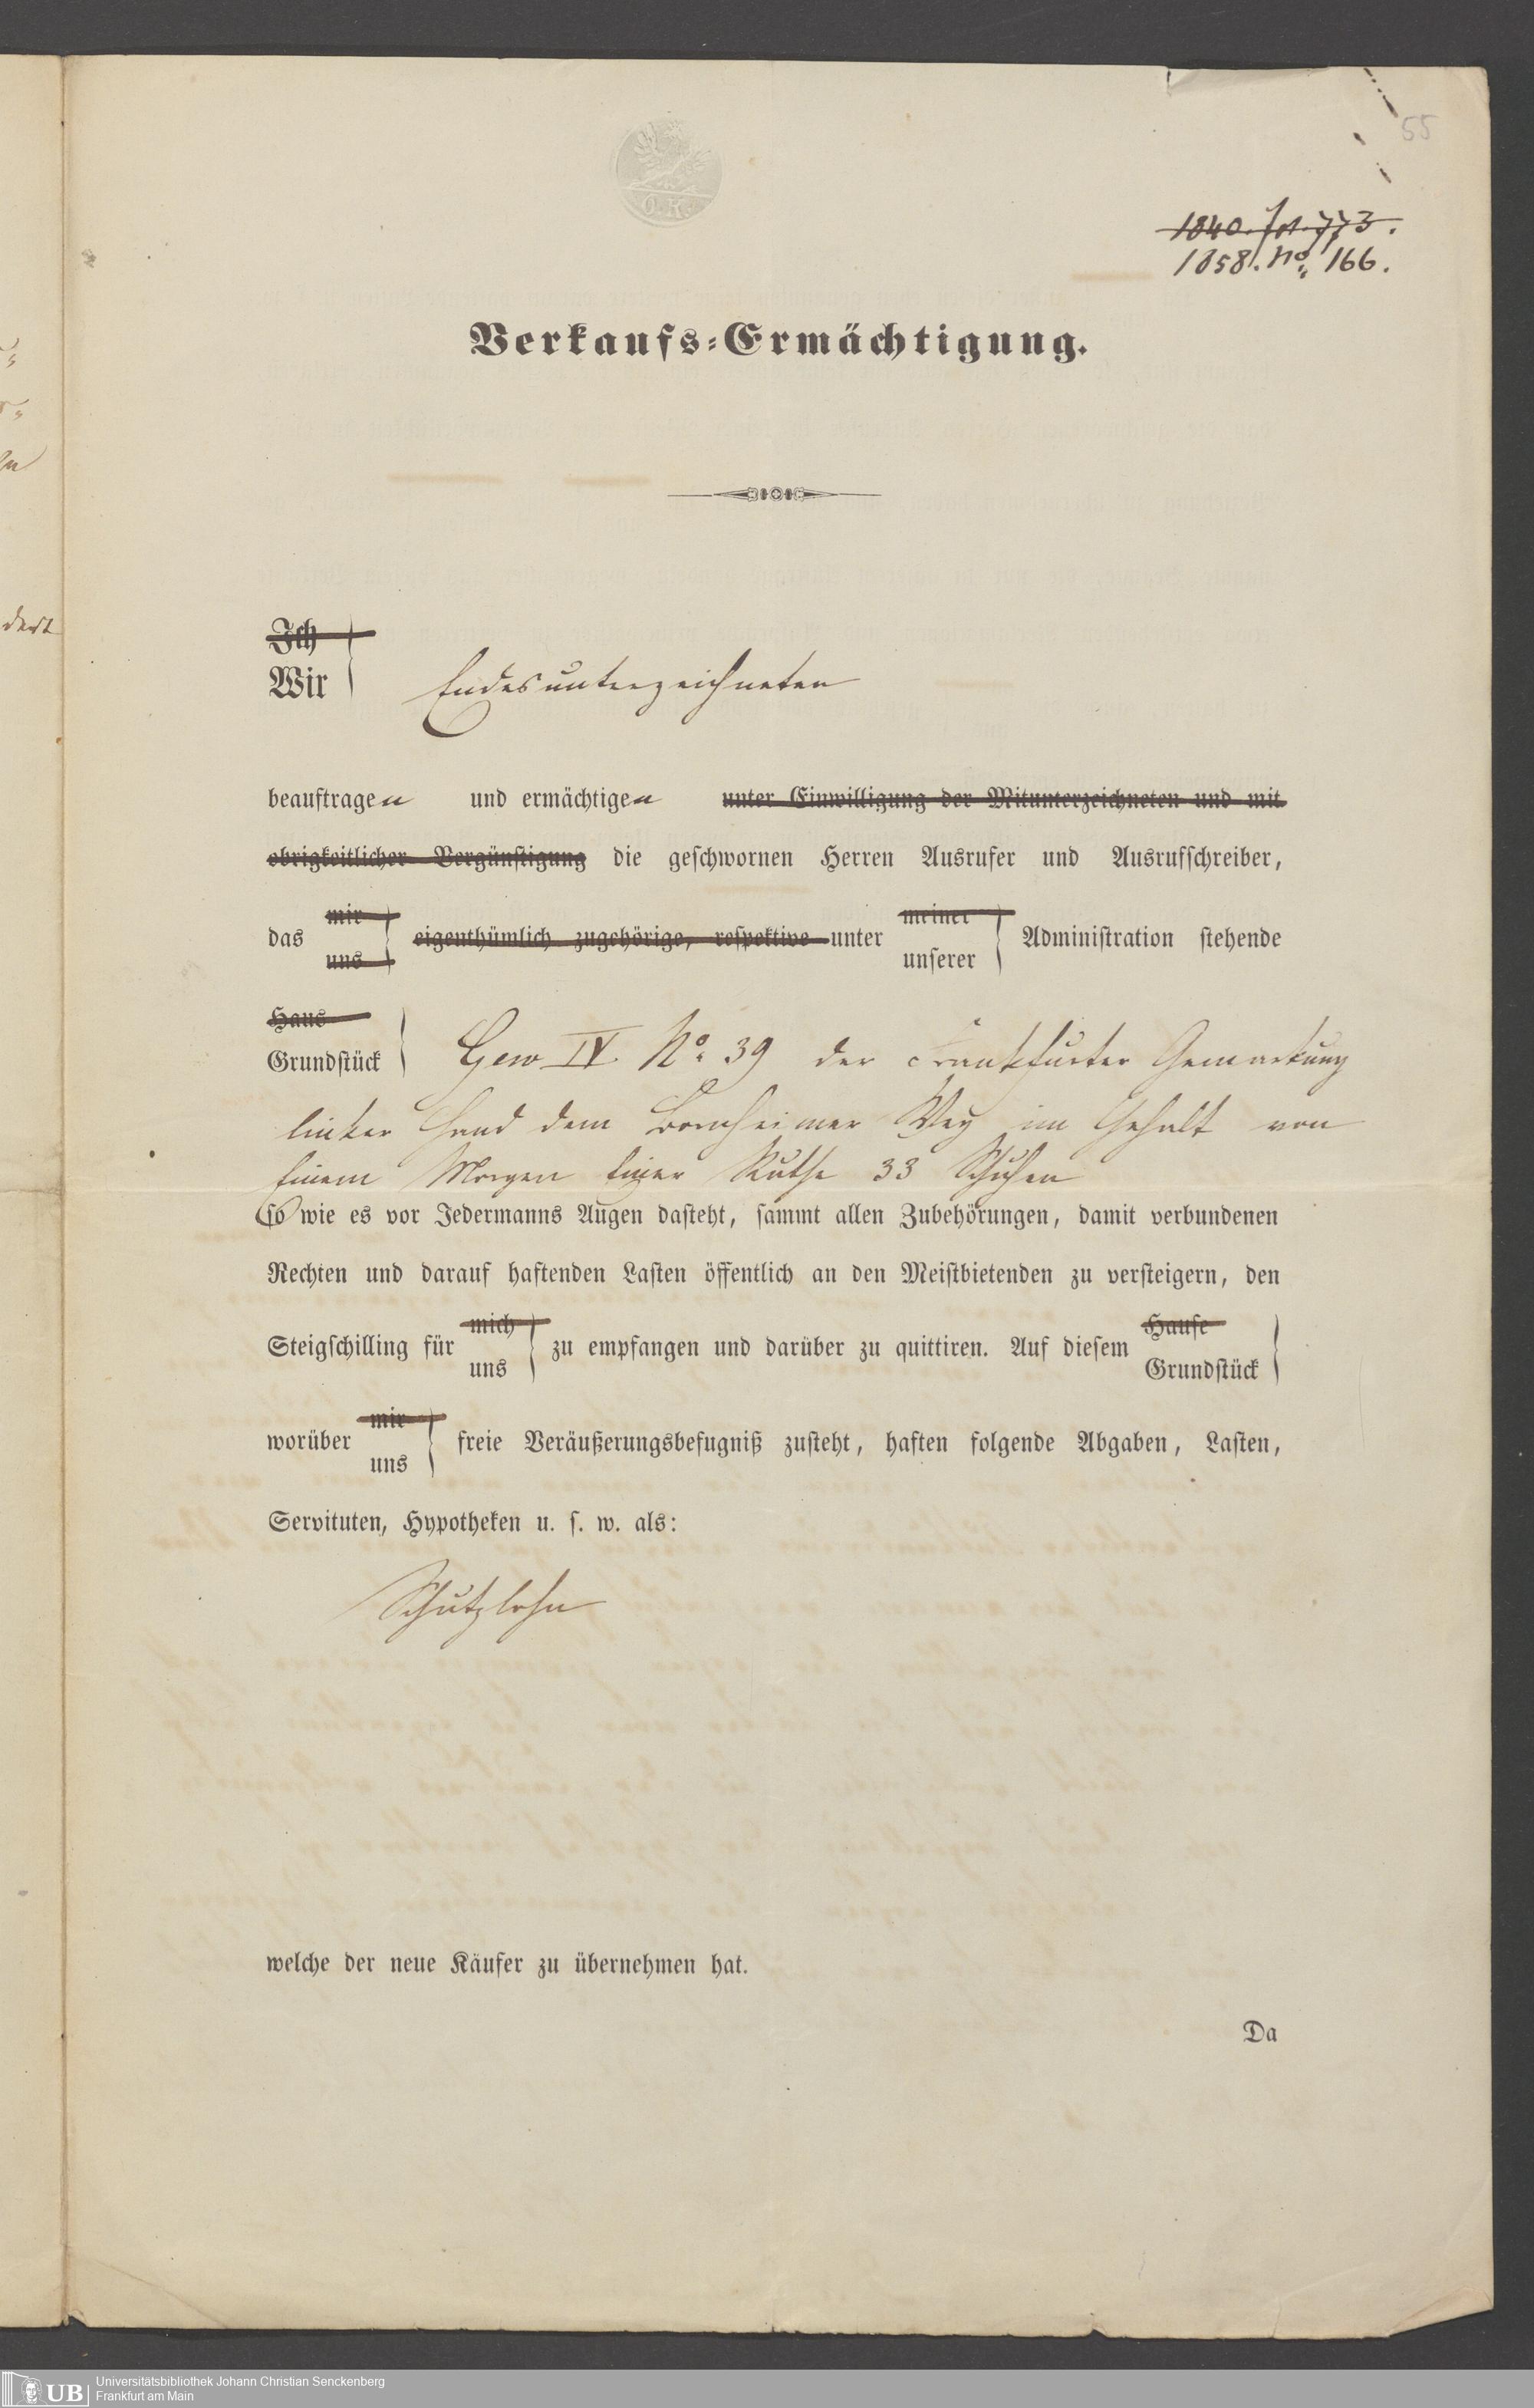 55
O. K.
1840. fol. 773.
1858. No. 166.
Verkaufs-Ermächtigung.
Ich
Wir
Endesunterzeichneten
beauftragen und ermächtigen unter Einwilligung der Mitunterzeichneten und mit
obrigkeitlicher Vergünstigung die geschwornen Herren Ausrufer und Ausrufschreiber,
das mir uns eigenthümlich zugehörige, respektive unter meiner unserer Administration stehende
Haus
Grundstück
Gew IV. No. 39 der Frankfurter Gemarkung
linker Hand dem Bornheimer Weg im Gehalt von
Einem Morgen Einer Ruthe 33 Schuhen
so wie es vor Jedermanns Augen dasteht, sammt allen Zubehörungen, damit verbundenen
Rechten und darauf haftenden Lasten öffentlich an den Meistbietenden zu versteigern, den
Steigschilling für mich uns zu empfangen und darüber zu quittiren. Auf diesem Hause Grundstück
worüber mir uns freie Veräußerungsbefugniß zusteht, haften folgende Abgaben, Lasten,
Servituten, Hypotheken u. s. w. als:
Schutzlohn
welche der neue Käufer zu übernehmen hat.
Da
UB
Universitätsbibliothek Johann Christian Senckenberg
Frankfurt am Main